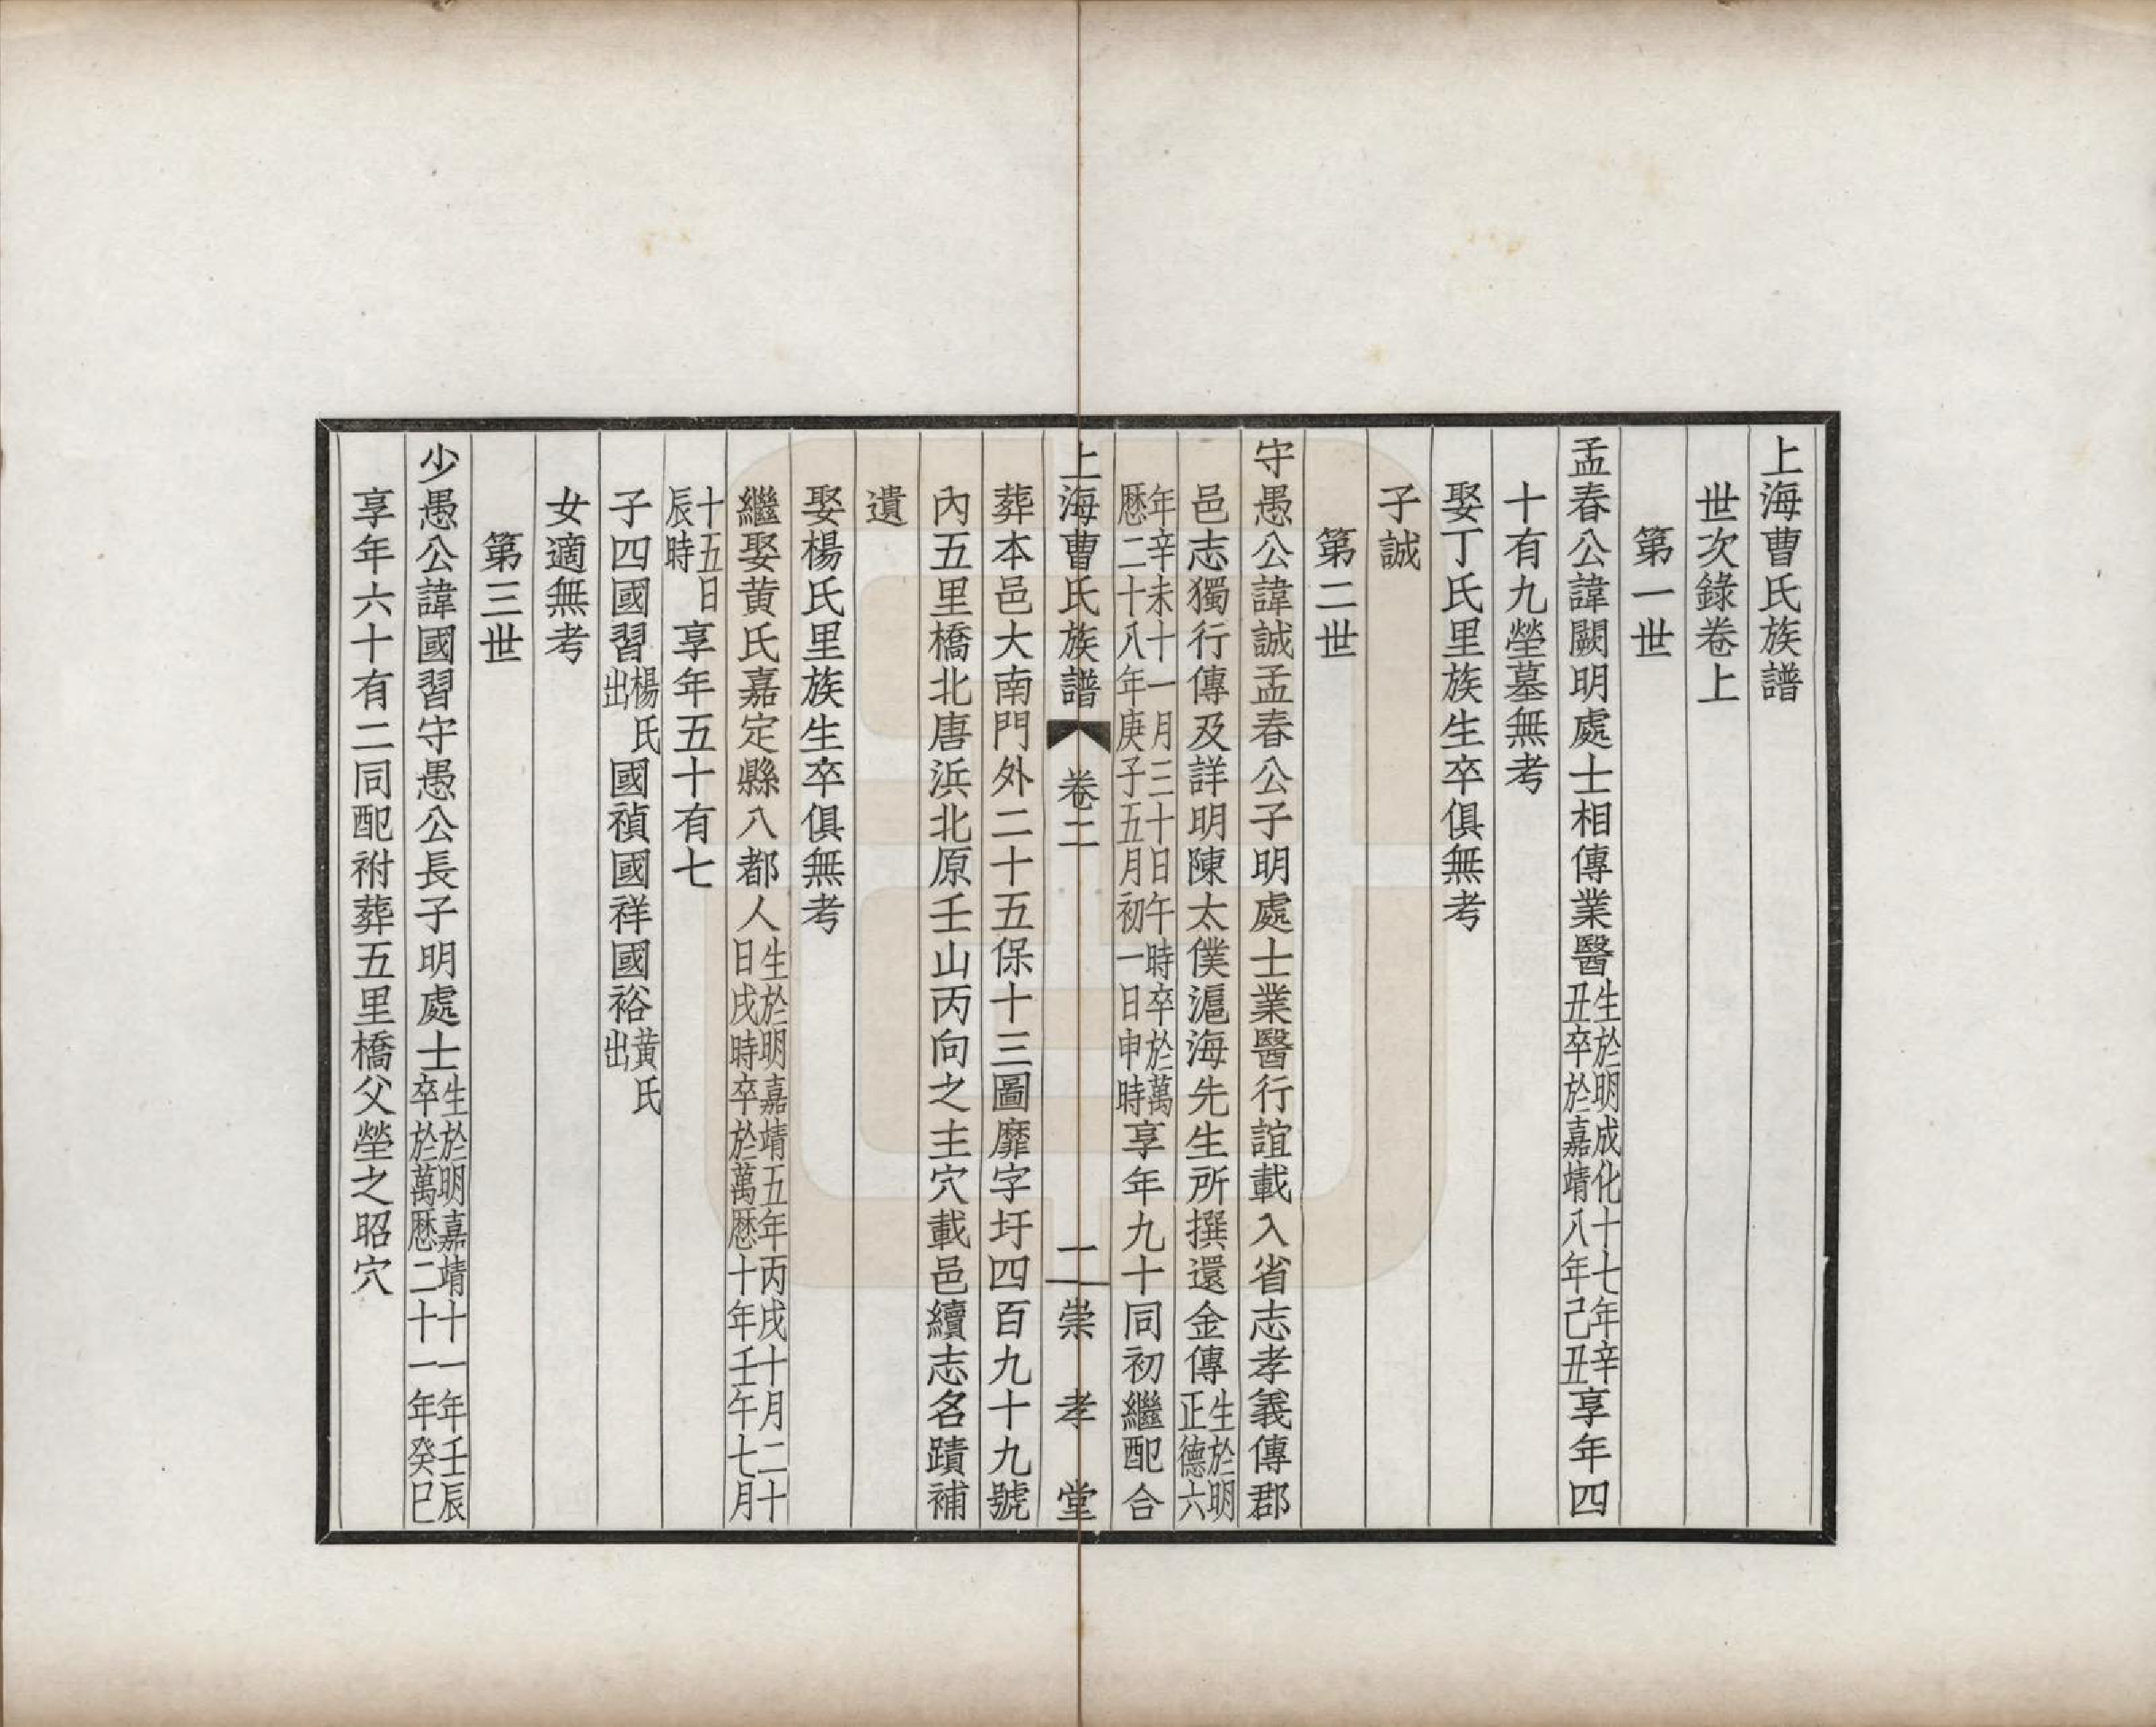 上海曹氏族譜
世次錄卷上
第一世
孟春公諱闕明處士相傳業醫生於明成化十七年辛丑卒於嘉靖八年己丑享年四
十有九塋墓無考
娶丁氏里族生卒俱無考
子誠
第二世
守愚公諱誠孟春公子明處士業醫行誼載入省志孝義傳郡
邑志獨行傳及詳明陳太僕滬海先生所撰還金傳生於明正德六
年辛未十一月三十日午時卒於萬曆二十八年庚子五月初一日申時享年九十同初繼配合
上海曹氏族譜 卷二 二 崇孝堂
葬本邑大南門外二十五保十三圖靡字圩四百九十九號
內五里橋北唐浜北原壬山丙向之主穴載邑續志名蹟補
遺
娶楊氏里族生卒俱無考
繼娶黃氏嘉定縣八都人生於明嘉靖五年丙戌十月二十日戌時卒於萬曆十年壬午七月
十五日辰時享年五十有七
子四國習楊氏出國禎國祥國裕黃氏出
女適無考
第三世
少愚公諱國習守愚公長子明處士生於明嘉靖十一年壬辰卒於萬曆二十一年癸巳
享年六十有二同配祔葬五里橋父塋之昭穴